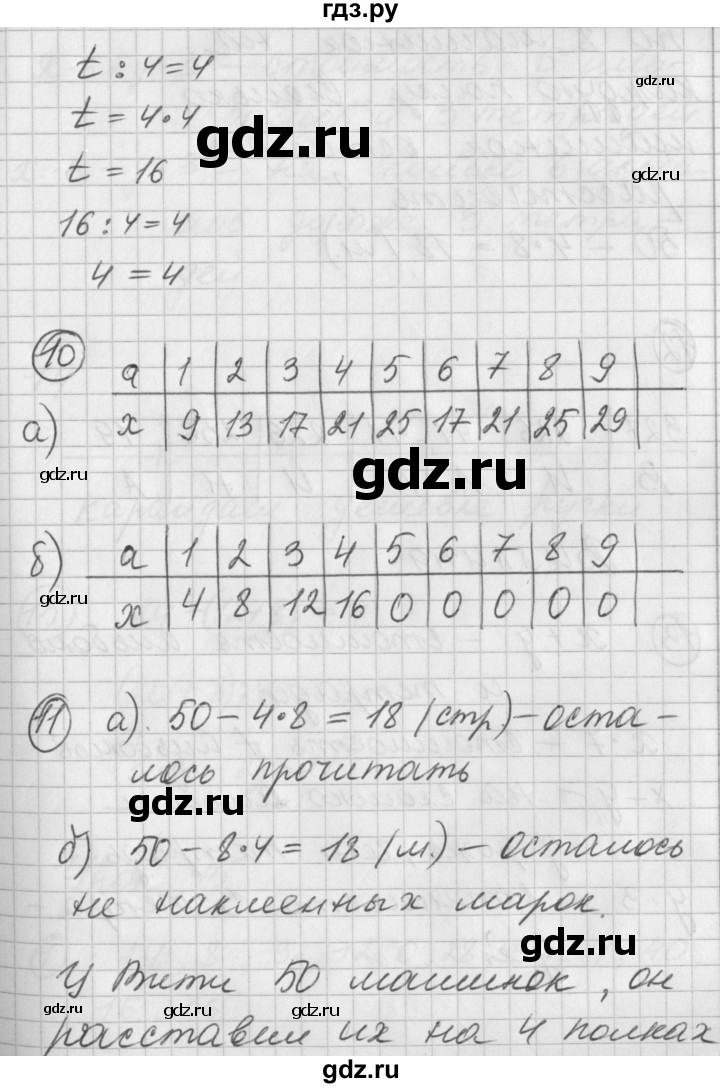 гдз.ру
t : 4 = 4
gdz.ru
t = 4 · 4
gdz.ru
t = 16
gdz.ru
16 : 4 = 4
4 = 4
10
а)
a 1 2 3 4 5 6 7 8 9
x 9 13 17 21 25 17 21 25 29
gdz.ru
gdz.ru
gdz.ru
б)
a 1 2 3 4 5 6 7 8 9
x 4 8 12 16 0 0 0 0 0
gdz.ru
gdz.ru
11 а). 50 – 4·8 = 18 (стр) – оста –
лось прочитать
gdz.ru
gdz.ru
б) 50 – 8·4 = 18 (м.) – осталось
не наклеенных марок.
gdz.ru
У Вити 50 машинок, он
gdz.ru
gdz.ru
расставил их на 4 полках
gdz.ru